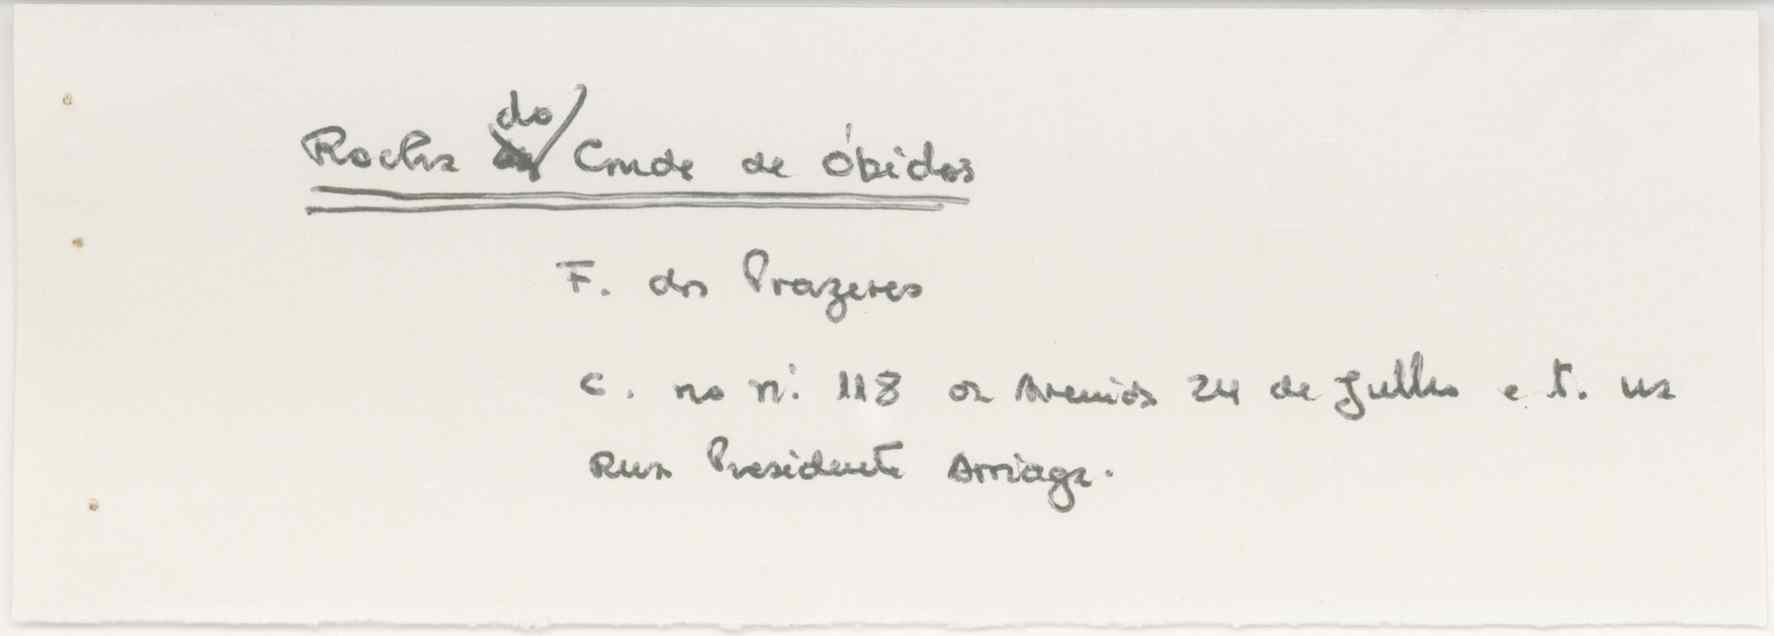 Rocha do Conde de Óbidos
F. dos Prazeres
C. no nº. 118 da Avenida 24 de Julho e t. na
Rua Presidente Arriaga.